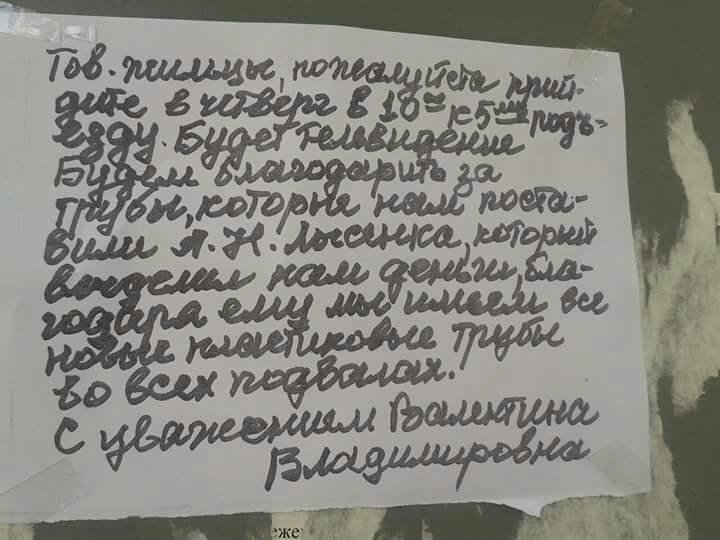 Тов. жильцы, пожалуйста прий-
дите в четверг в 10 00 к 5 му подъ-
езду. Будет телевидение
Будем благодарить за
трубы, которые нам поста-
вили А. Н. Лысенка, который
выделил нам деньги, бла-
годаря ему мы имеем все
новые пластиковые трубы
во всех подвалах.
С уважением Валентина
Владимировна
еже